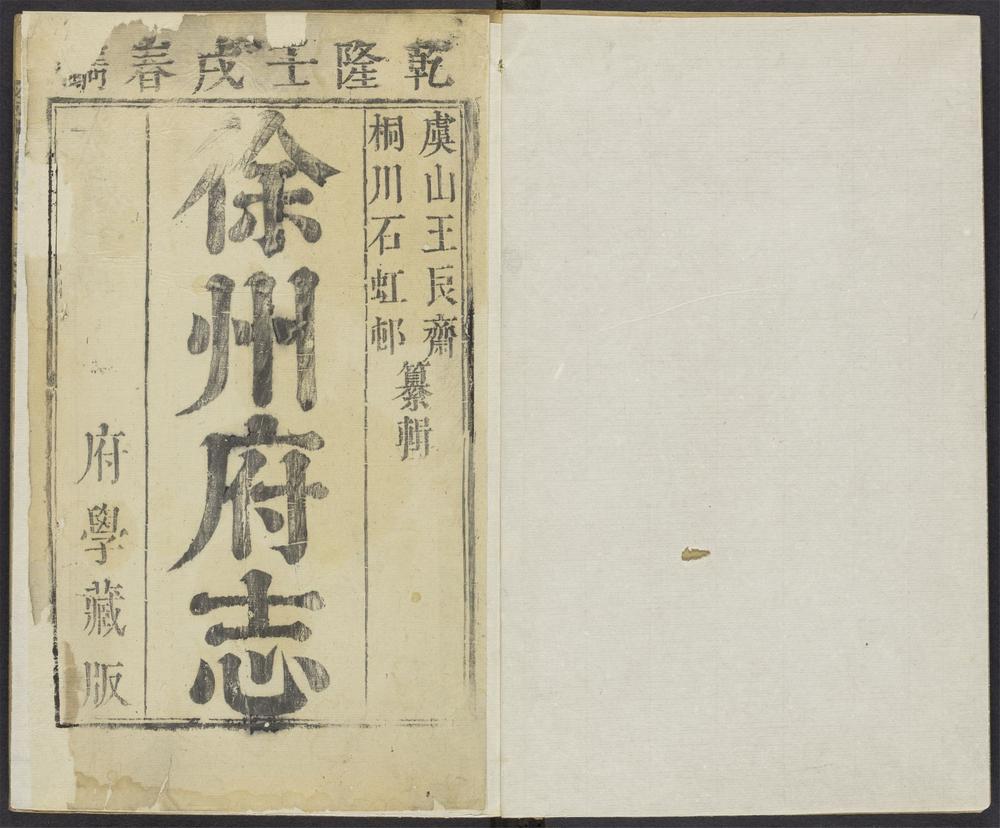 乾隆壬戌春鐫
虞山王艮齋
桐川石虹邨
纂輯
徐州府志
府學藏版